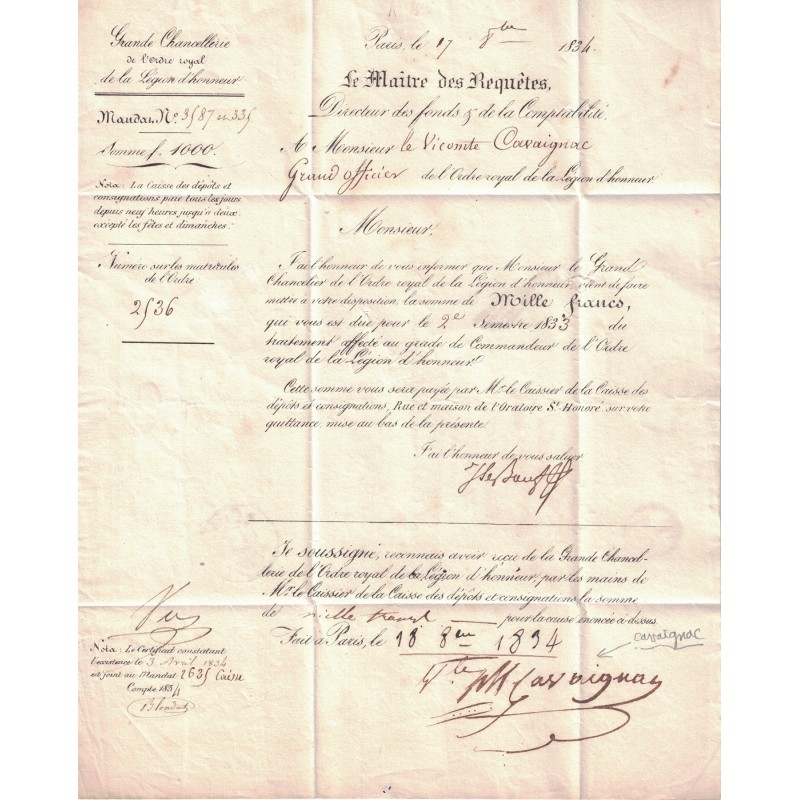 Grande Chancellerie
de l'Ordre royal
de la Légion d'honneur
Mandat N.º 3587
Somme f. 1000.
Nota : La Caisse des dépôts et
consignations paie tous les jours
depuis neuf heures jusqu'à deux
excepté les fêtes et dimanches.
Numéro sur les matricules
de l'Ordre
2536
Paris, le 17 8bre 1834.
Le Maître des Requêtes,
Directeur des fonds & de la Comptabilité.
A Monsieur le Vicomte Cavaignac
Grand officier de l'Ordre royal de la Légion d'honneur.
Monsieur,
J'ai l'honneur de vous informer que Monsieur le Grand
Chancelier de l'Ordre royal de la Légion d'honneur, vient de faire
mettre à votre disposition, la somme de Mille francs,
qui vous est due pour le 2e Semestre 1833 du
traitement affecté au grade de Commandeur de l'Ordre
royal de la Légion d'honneur.
Cette somme vous sera payée par Mr. le Caissier de la Caisse des
dépôts et consignations, Rue et maison de l'Oratoire St. Honoré, sur votre
quittance, mise au bas de la présente.
J'ai l'honneur de vous saluer
Je soussigné, reconnais avoir reçu de la Grande Chancel-
lerie de l'Ordre royal de la Légion d'honneur, par les mains de
Mr. le Caissier de la Caisse des dépôts et consignations la somme
de mille francs pour la cause énoncée ci-dessus.
Fait à Paris, le 18 8bre 1834
cavaignac
Vte Cavaignac
Vu
Nota : Le Certificat constatant
l'existence le 3 Avril 1834
est joint au Mandat 2635 Caisse
Compte 1834